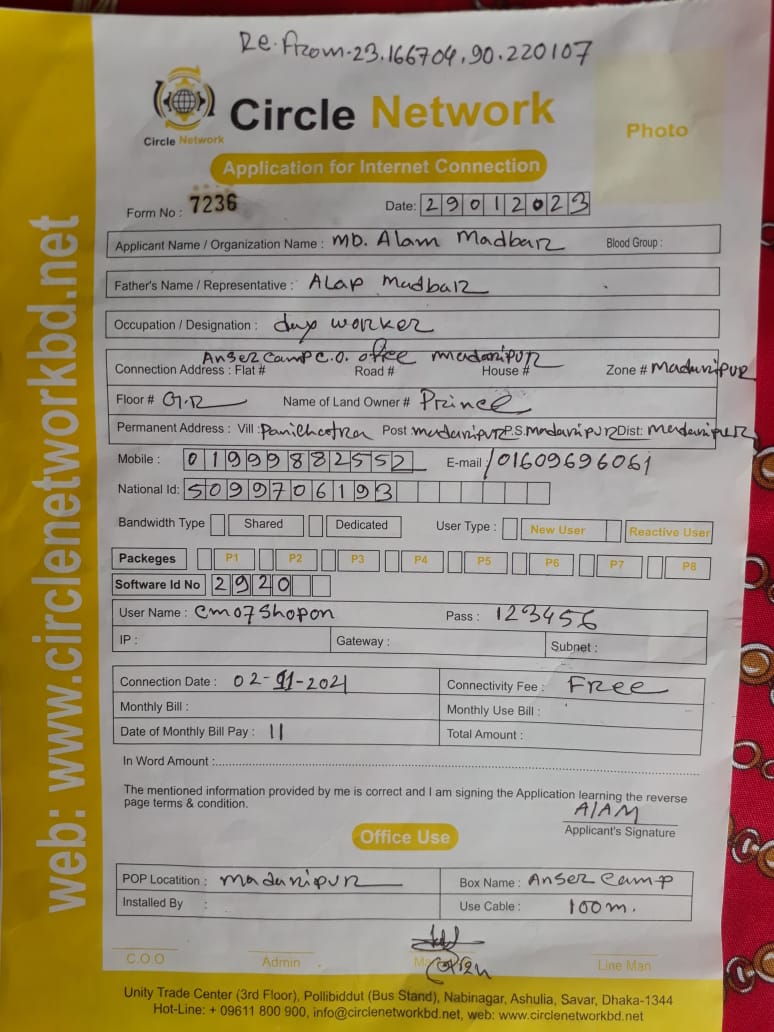 Re. From-23.166704,90.220107
Circle Network
Circle Network
Photo
Application for Internet Connection
Form No : 7236
Date: 29012023
Applicant Name / Organization Name : MD. Alam Madbar
Blood Group :
Father's Name / Representative : ALAP Madbar
Occupation / Designation : day worker
Anser Camp C.O. office Madaripur
Connection Address : Flat # Road # House # Zone # Madaripur
Floor # G.R Name of Land Owner # Prince
Permanent Address : Vill : Panichatra Post Madaripur P.S. Madaripur Dist: Madaripur
Mobile : 01999882552 E-mail / 01609696061
National Id: 5099706193
Bandwidth Type Shared Dedicated User Type : New User Reactive User
Packeges P1 P2 P3 P4 P5 P6 P7 P8
Software Id No 2920
User Name : cm07Shopon Pass : 123456
IP : Gateway : Subnet :
Connection Date : 02-11-2021 Connectivity Fee : Free
Monthly Bill : Monthly Use Bill :
Date of Monthly Bill Pay : 11 Total Amount :
In Word Amount :
The mentioned information provided by me is correct and I am signing the Application learning the reverse
page terms & condition.
AlAM
Applicant's Signature
Office Use
POP Locatition : Madaripur Box Name : Anser Camp
Installed By : Use Cable : 100m.
C.O.O Admin Line Man
Unity Trade Center (3rd Floor), Pollibiddut (Bus Stand), Nabinagar, Ashulia, Savar, Dhaka-1344
Hot-Line: + 09611 800 900, info@circlenetworkbd.net, web: www.circlenetworkbd.net
web: www.circlenetworkbd.net